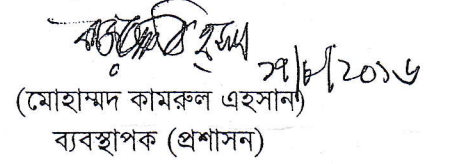 ১৭/৮/২০১৬
(মোহাম্মদ কামরুল এহসান)
ব্যবস্থাপক (প্রশাসন)